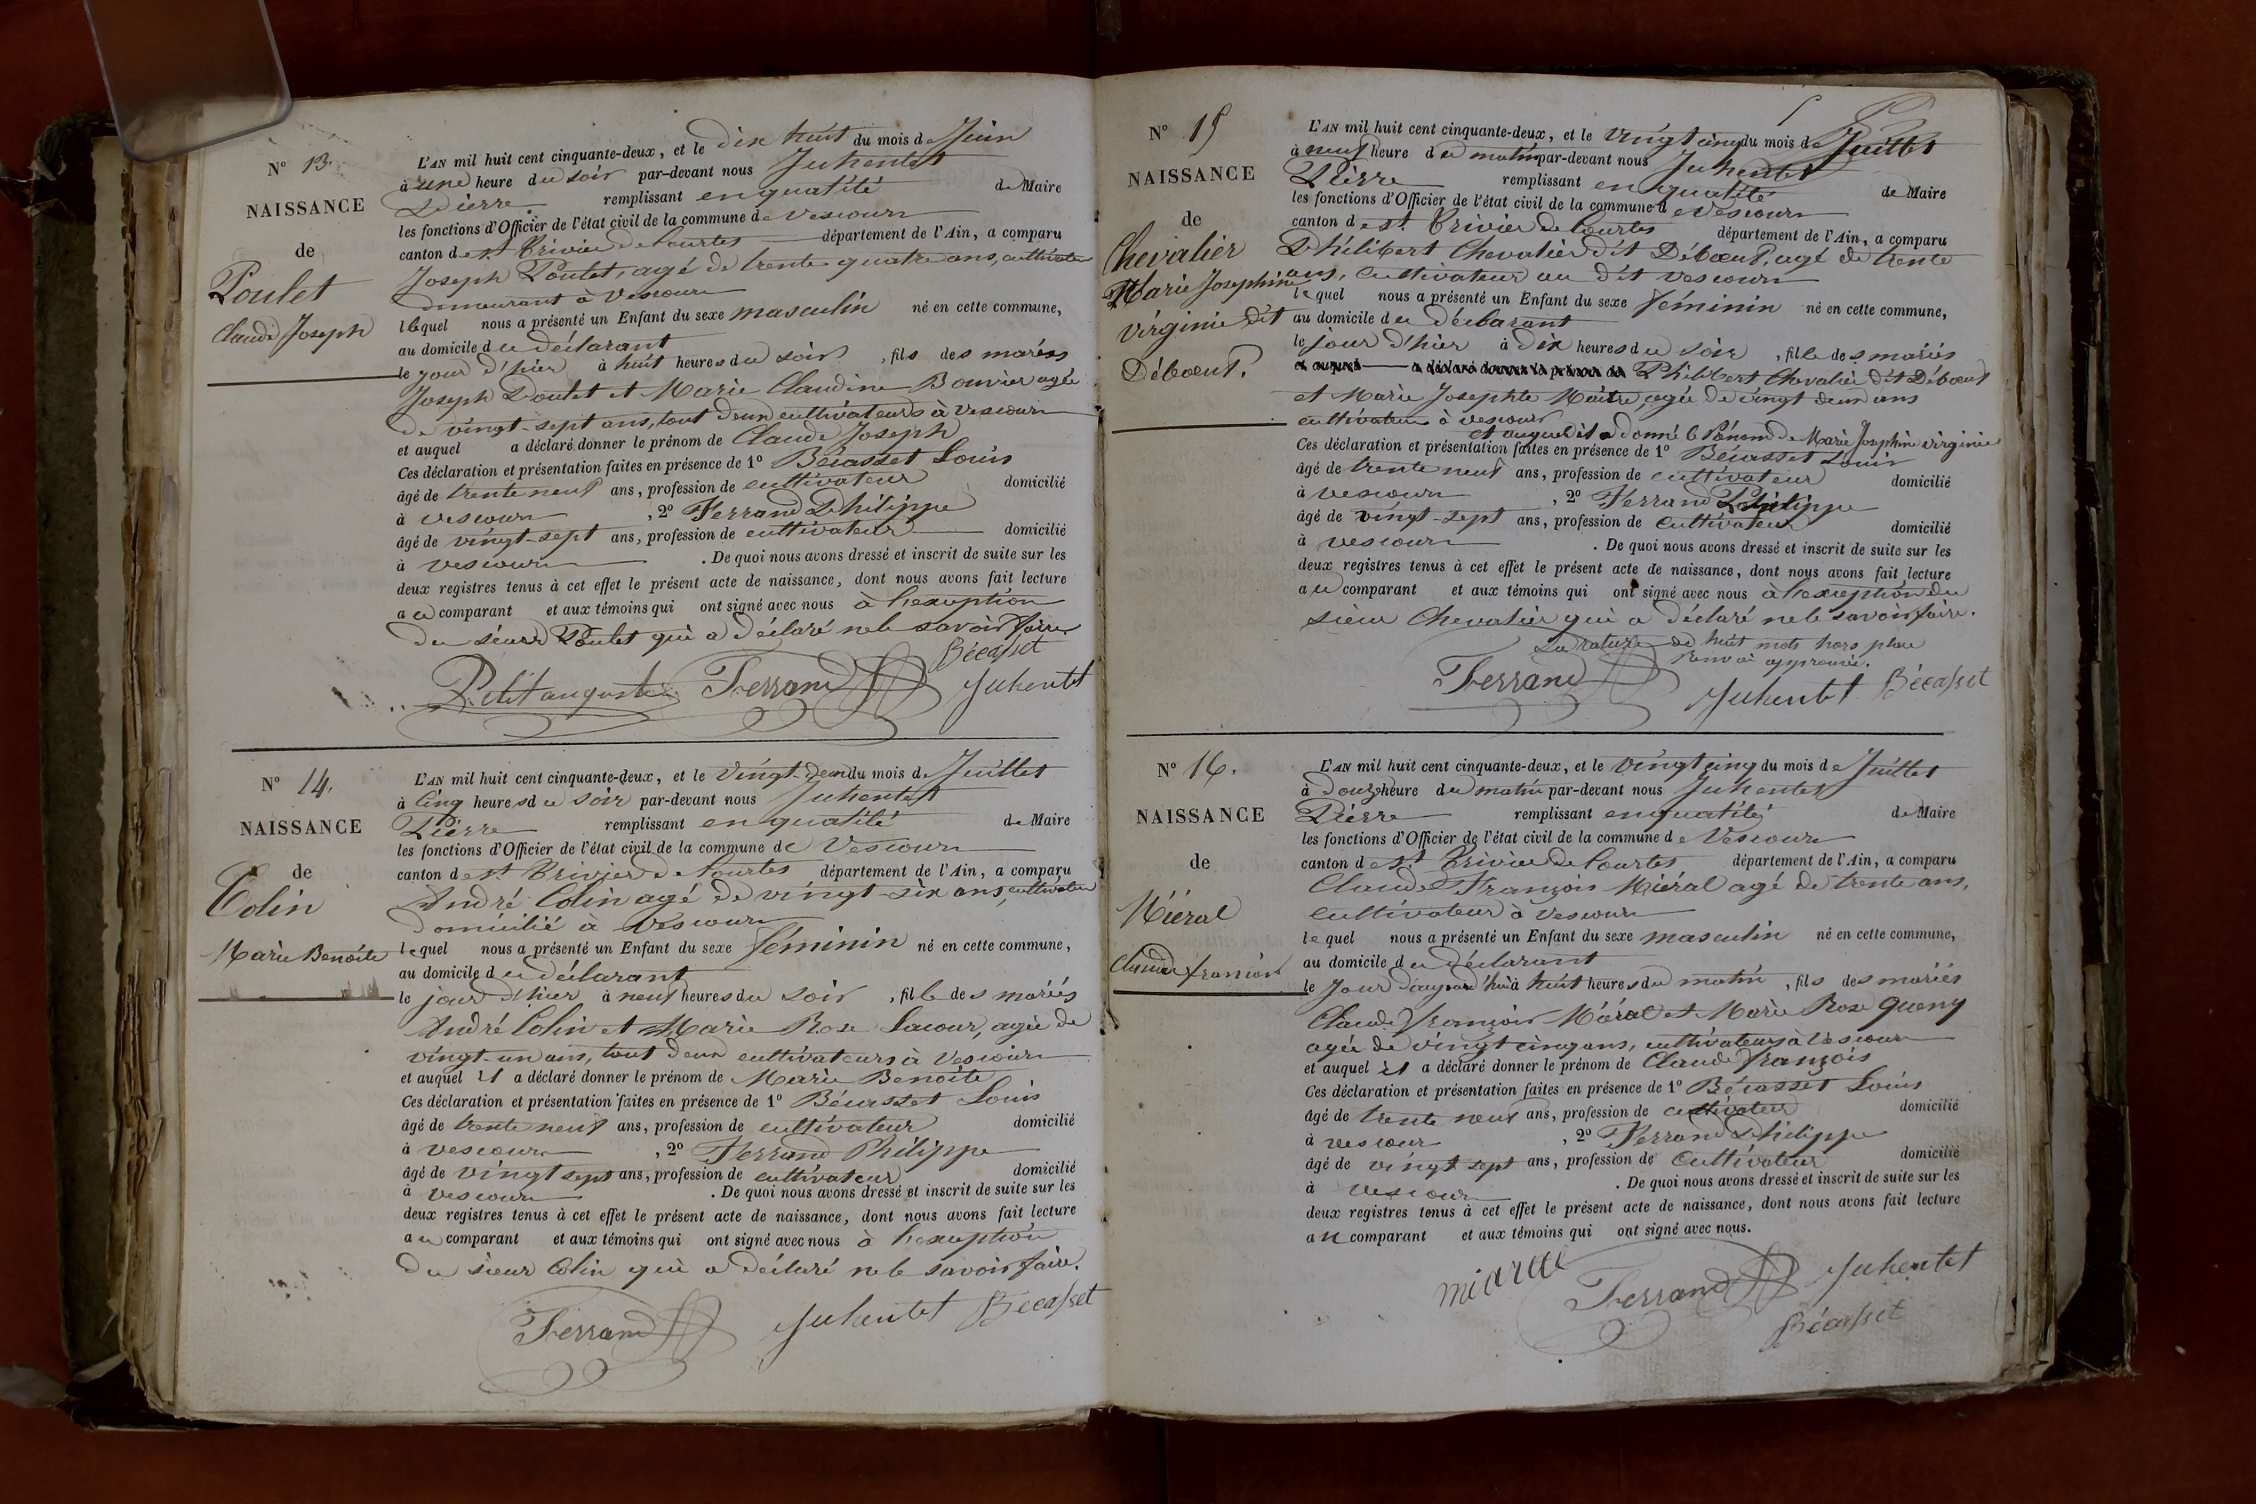 N° 13.
NAISSANCE
de
Poulet
Claude Joseph
L'AN mil huit cent cinquante-deux, et le dix huit du mois de Juin
à une heure du soir par-devant nous Juhentet
Pierre remplissant en qualité de Maire
les fonctions d'Officier de l'état civil de la commune de Vescours
canton de St Trivier de Courtes département de l'Ain, a comparu
Joseph Poulet, agé de trente quatre ans, cultivateur
demeurant à Vescours
lequel nous a présenté un Enfant du sexe masculin né en cette commune,
au domicile du déclarant
le jour d'hier à huit heures du soir, fils des mariés
Joseph Poulet et Marie Claudine Bouvier agée
de vingt-sept ans, tout deux cultivateurs à Vescours
et auquel a déclaré donner le prénom de Claude Joseph
Ces déclaration et présentation faites en présence de 1° Bécasset Louis
âgé de trente neuf ans, profession de cultivateur domicilié
à vescours, 2° Ferrand Philippe
âgé de vingt-sept ans, profession de cultivateur domicilié
à vescours. De quoi nous avons dressé et inscrit de suite sur les
deux registres tenus à cet effet le présent acte de naissance, dont nous avons fait lecture
au comparant et aux témoins qui ont signé avec nous à l'exception
du sieur Poulet qui a déclaré ne le savoir faire.
Bécasset
Petit auguste Ferrand Juhentet
N° 14.
NAISSANCE
de
Colin
Marie Benoite
L'AN mil huit cent cinquante-deux, et le Vingt-deux du mois de Juillet
à Cinq heures du soir par-devant nous Juhentet
Pierre remplissant en qualité de Maire
les fonctions d'Officier de l'état civil de la commune de Vescours
canton de St. Trivier de Courtes département de l'Ain, a comparu
André Colin agé de vingt-six ans, cultivateur
domicilié à Vescours
lequel nous a présenté un Enfant du sexe féminin né en cette commune,
au domicile du déclarant
le jour d'hier à neuf heures du soir, fille des mariés
André Colin et Marie Rose Lacour, agée de
vingt-un ans, tout deux cultivateurs à Vescours
et auquel il a déclaré donner le prénom de Marie Benoite
Ces déclaration et présentation faites en présence de 1° Bécasset Louis
âgé de trente neuf ans, profession de cultivateur domicilié
à vescours, 2° Ferrand Philippe
âgé de vingt sept ans, profession de cultivateur domicilié
à vescours. De quoi nous avons dressé et inscrit de suite sur les
deux registres tenus à cet effet le présent acte de naissance, dont nous avons fait lecture
au comparant et aux témoins qui ont signé avec nous à l'exception
du sieur Colin qui a déclaré ne le savoir faire.
Ferrand Juhentet Bécasset
N° 15
NAISSANCE
de
Chevalier
Marie Josephine
virginie dit
Débœuf.
L'AN mil huit cent cinquante-deux, et le vingt cinq du mois de Juillet
à neuf heure du matin par-devant nous Juhentet
Pierre remplissant en qualité de Maire
les fonctions d'Officier de l'état civil de la commune de Vescours
canton de St. Trivier de Courtes département de l'Ain, a comparu
Philibert Chevalier dit Débœuf, agé de trente
ans, cultivateur au dit vescours
lequel nous a présenté un Enfant du sexe féminin né en cette commune,
au domicile du déclarant
le jour d'hier à dix heures du soir, fille des mariés
et auquel a déclaré donner le prénom de Philibert Chevalier dit Débœuf
et Marie Josephte Maitre, agée de vingt deux ans
cultivateurs à vescours
et auquel il a donné le Prénom de Marie Josephine virginie
Ces déclaration et présentation faites en présence de 1° Bécasset Louis
âgé de trente neuf ans, profession de cultivateur domicilié
à vescours, 2° Ferrand Philippe
âgé de vingt-sept ans, profession de cultivateur domicilié
à vescours. De quoi nous avons dressé et inscrit de suite sur les
deux registres tenus à cet effet le présent acte de naissance, dont nous avons fait lecture
au comparant et aux témoins qui ont signé avec nous à l'exception du
sieur Chevalier qui a déclaré ne le savoir faire.
La rature de huit mots hors place
Renvoi approuvé.
Ferrand Juhentet Bécasset
N° 16.
NAISSANCE
de
Miéral
Claude françois
L'AN mil huit cent cinquante-deux, et le vingt cinq du mois de Juillet
à douze heure du matin par-devant nous Juhentet
Pierre remplissant en qualité de Maire
les fonctions d'Officier de l'état civil de la commune de Vescours
canton de St Trivier de Courtes département de l'Ain, a comparu
Claude François Miéral agé de trente ans,
cultivateur à vescours
lequel nous a présenté un Enfant du sexe masculin né en cette commune,
au domicile du déclarant
le Jour d'aujourd'hui à huit heures du matin, fils des mariés
Claude François Miéral et Marie Rose
agée de vingt cinq ans, cultivateurs à Vescours
et auquel il a déclaré donner le prénom de Claude François
Ces déclaration et présentation faites en présence de 1° Bécasset Louis
âgé de trente neuf ans, profession de cultivateur domicilié
à vescours, 2° Ferrand Philippe
âgé de vingt sept ans, profession de Cultivateur domicilié
à vescours. De quoi nous avons dressé et inscrit de suite sur les
deux registres tenus à cet effet le présent acte de naissance, dont nous avons fait lecture
au comparant et aux témoins qui ont signé avec nous.
Ferrand Juhentet
Bécasset